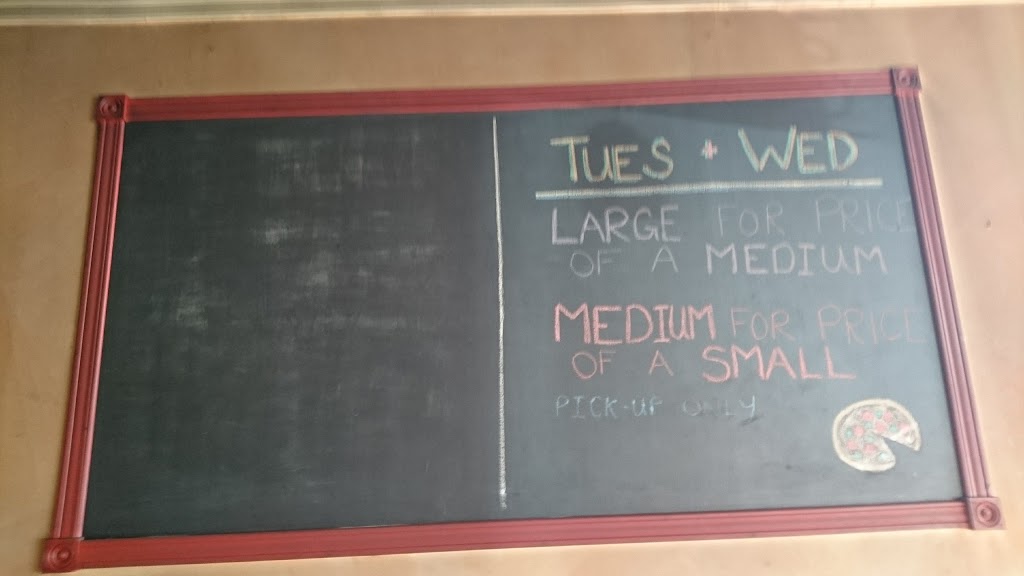 TUES + WED
LARGE FOR PRICE
OF A MEDIUM
MEDIUM FOR PRICE
OF A SMALL
PICK-UP ONLY